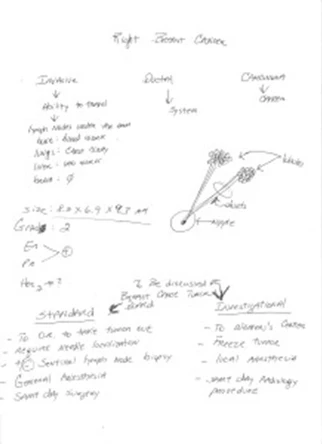 Right Breast Cancer
Invasive
Ductal
Carcinoma
Ability to travel
System
Cancer
lymph nodes under the arm
bone: blood work
lungs: Chest xray
liver: blood work
brain: Ø
lobules
ducts
nipple
Size: 8.0 x 6.9 x 9.3 mm
Grade: 2
Er
Pr
+
Her2 → ?
To Be discussed @
Breast Care Tumor
Board
Standard
Investigational
- To O.R. to take tumor out
- Require needle localization
- Sentinel lymph node biopsy
- General Anesthesia
- Same day surgery
- Freeze Tumor
- local Anesthesia
- same day Radiology
procedure